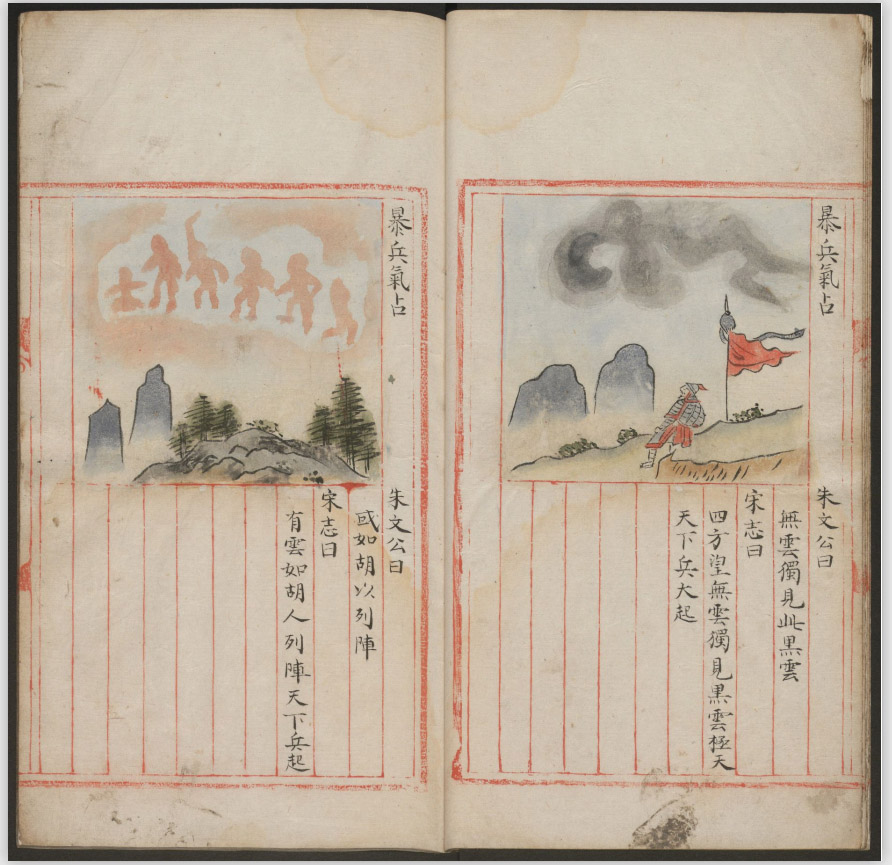 暴兵氣占
朱文公曰
無雲獨見此黑雲
宋志曰
四方望無雲獨見黑雲極天
天下兵大起
暴兵氣占
朱文公曰
或如胡以列陣
宋志曰
有雲如胡人列陣天下兵起